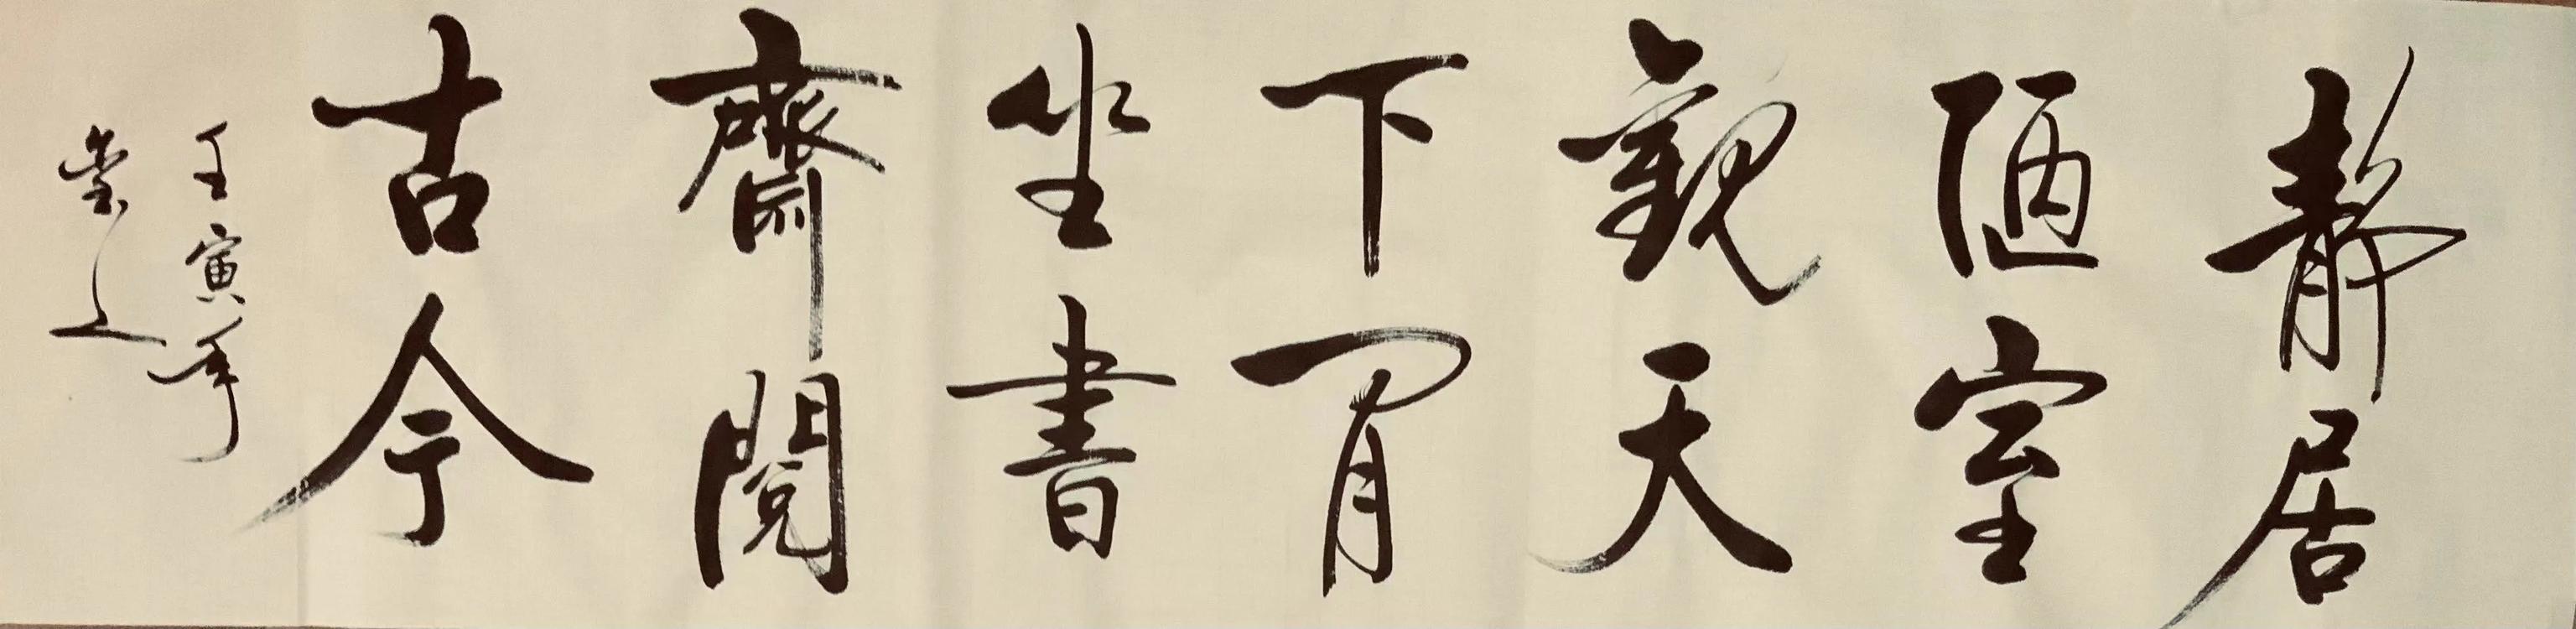 靜居
陋室
觀天
下閒
坐書
齋閱
古今
壬寅年